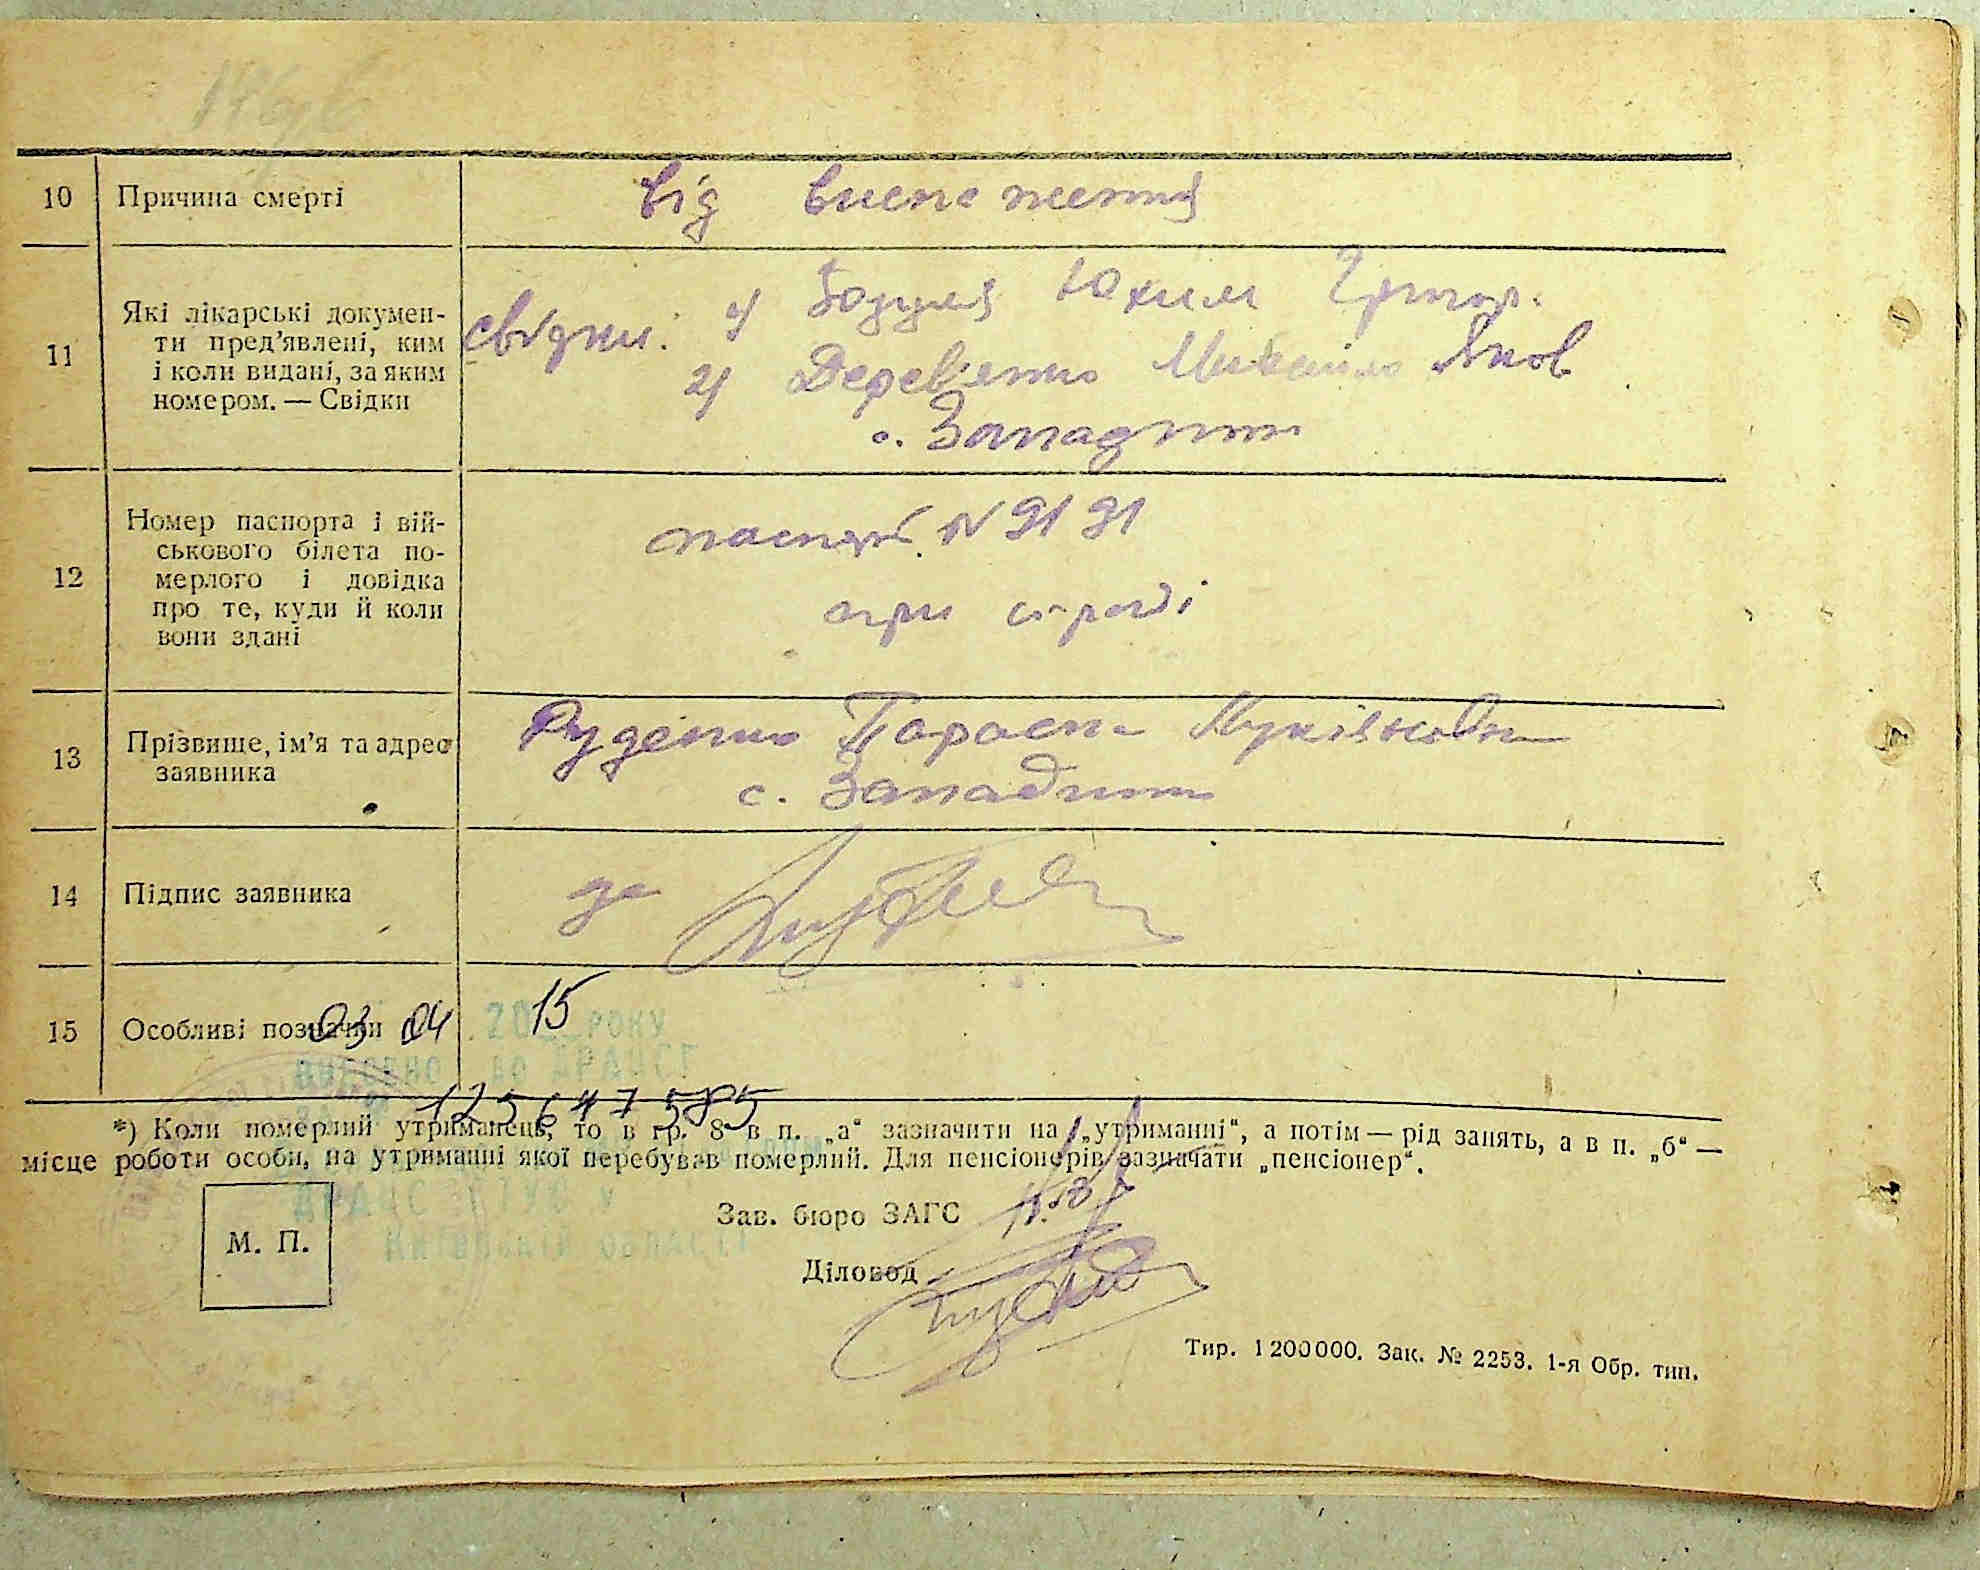 10 Причина смерті
від виснаження
11 Які лікарські докумен-
ти пред’явлені, ким
і коли видані, за яким
номером. — Свідки
свідки: 1) Юхим Григор.
2) Деревенко Михайло Яков
с. Западинка
12 Номер паспорта і вій-
ськового білета по-
мерлого і довідка
про те, куди й коли
вони здані
паспорт N 9191
при справі
13 Прізвище, ім’я та адрес
заявника
Руденко Параска
с. Западинка
14 Підпис заявника
за
15 Особливі позначки
03 04 2015 РОКУ
ВНЕСЕНО ДО ДРАЦСГ
125647585
*) Коли померлий утриманець, то в гр. 8 в п. „а“ зазначити на „утриманні“, а потім — рід занять, а в п. „б“ —
місце роботи особи, на утриманні якої перебував померлий. Для пенсіонерів зазначати „пенсіонер“.
ДРАЦС ГТУЮ у
Київській області
М. П.
Зав. бюро ЗАГС
Діловод
Тир. 1 200 000. Зак. № 2253. 1-я Обр. тип.